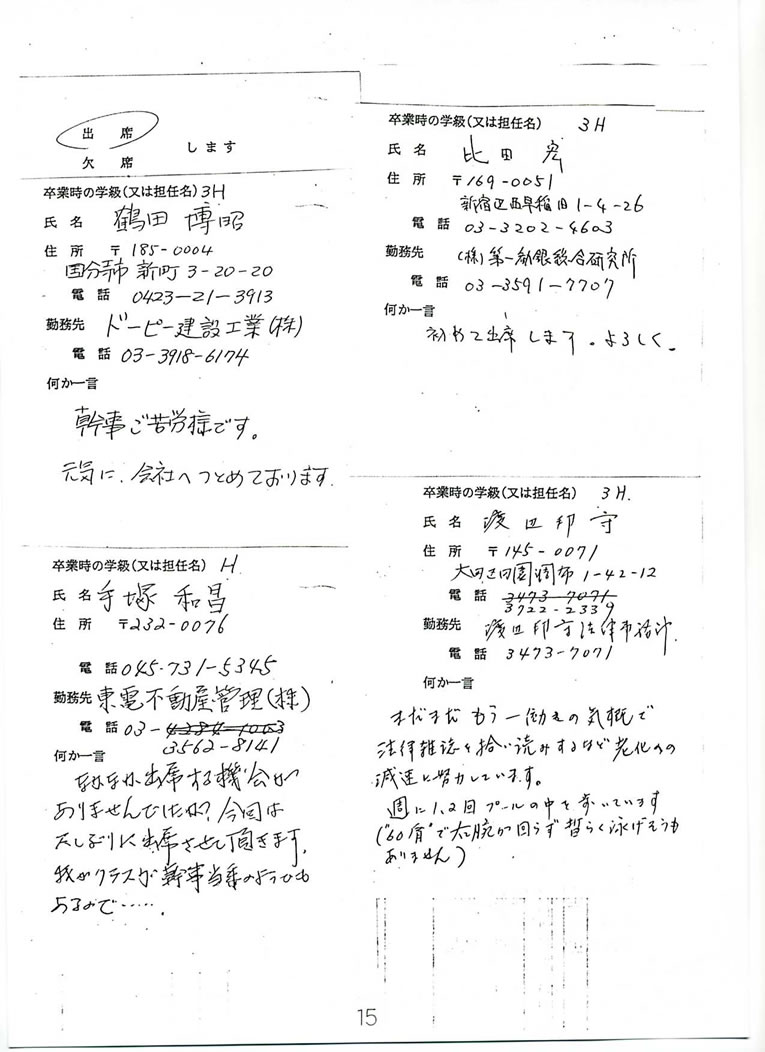 出　席
欠　席
します
卒業時の学級(又は担任名) 3H
氏　名　鶴田 博昭
住　所　〒185-0004
国分寺市 新町 3-20-20
電　話　0423-21-3913
勤務先　ドーピー建設工業(株)
電　話　03-3918-6174
何か一言
幹事ご苦労様です。
元気に、会社へつとめております。
卒業時の学級(又は担任名) H
氏　名　手塚 和昌
住　所　〒232-0076
電　話　045-731-5345
勤務先　東電不動産管理(株)
電　話　03-
3562-8141
何か一言
なかなか出席する機会が
ありませんでしたが?今回は
久しぶりに出席させて頂きます。
我がクラスが幹事当番のようでも
あるので……。
卒業時の学級(又は担任名)　3H
氏　名　比田 宏
住　所　〒169-0051
新宿区西早稲田 1-4-26
電　話　03-3202-4603
勤務先　(株)第一勧銀総合研究所
電　話　03-3591-7707
何か一言
初めて出席します。よろしく。
卒業時の学級(又は担任名)　3H.
氏　名　渡辺 邦守
住　所　〒145-0071
大田区田園調布 1-42-12
電　話　3473-7071
3722-2339
勤務先　渡辺邦守法律事務所
電　話　3473-7071
何か一言
まだまだ もう一働きの気概で
法律雑誌を拾い読みするなど老化への
減速に努力しています。
週に1,2回 プールの中を歩いています
("60肩"で大腕が回らず暫らく泳げそうも
ありません)
15